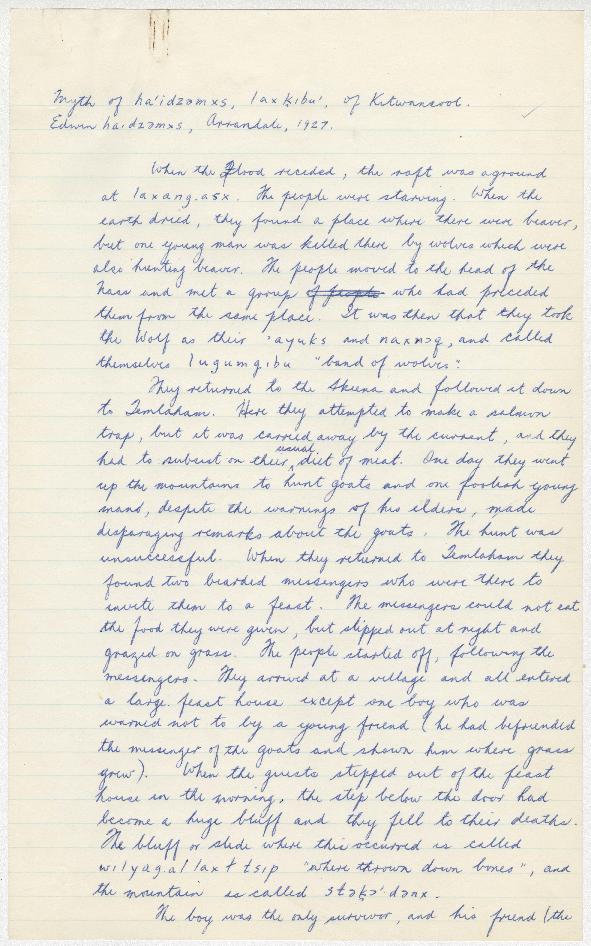 Myth of ha'idzəmxs, laxḵibu', of Kitwancool.
Edwin haidzəmxs, Arrandale, 1927.
When the Flood receded, the raft was aground
at laxang.asx. The people were starving. When the
earth dried, they found a place where there were beaver,
but one young man was killed there by wolves which were
also hunting beaver. The people moved to the head of the
Nass and met a group of people who had preceded
them from the same place. It was then that they took
the Wolf as their ɔayuks and naxnɔg, and called
themselves lugumgibu "band of wolves".
They returned to the Skeena and followed it down
to Temlaham. Here they attempted to make a salmon
trap, but it was carried away by the current, and they
had to subsist on their usual diet of meat. One day they went
up the mountains to hunt goats and one foolish young
mand, despite the warnings of his elders, made
disparaging remarks about the goats. The hunt was
unsuccessful. When they returned to Temlaham they
found two bearded messengers who were there to
invite them to a feast. The messengers could not eat
the food they were given, but slipped out at night and
grazed on grass. The people started off, following the
messengers. They arrived at a village and all entered
a large feast house except one boy who was
warned not to by a young friend (he had befriended
the messenger of the goats and shown him where grass
grew). When the guests stepped out of the feast
house in the morning, the step below the door had
become a huge bluff and they fell to their deaths.
The bluff or slide where this occurred is called
wilyag.allaxł tsip "where thrown down bones", and
the mountain is called stəkɔ'dənx.
The boy was the only survivor, and his friend (the